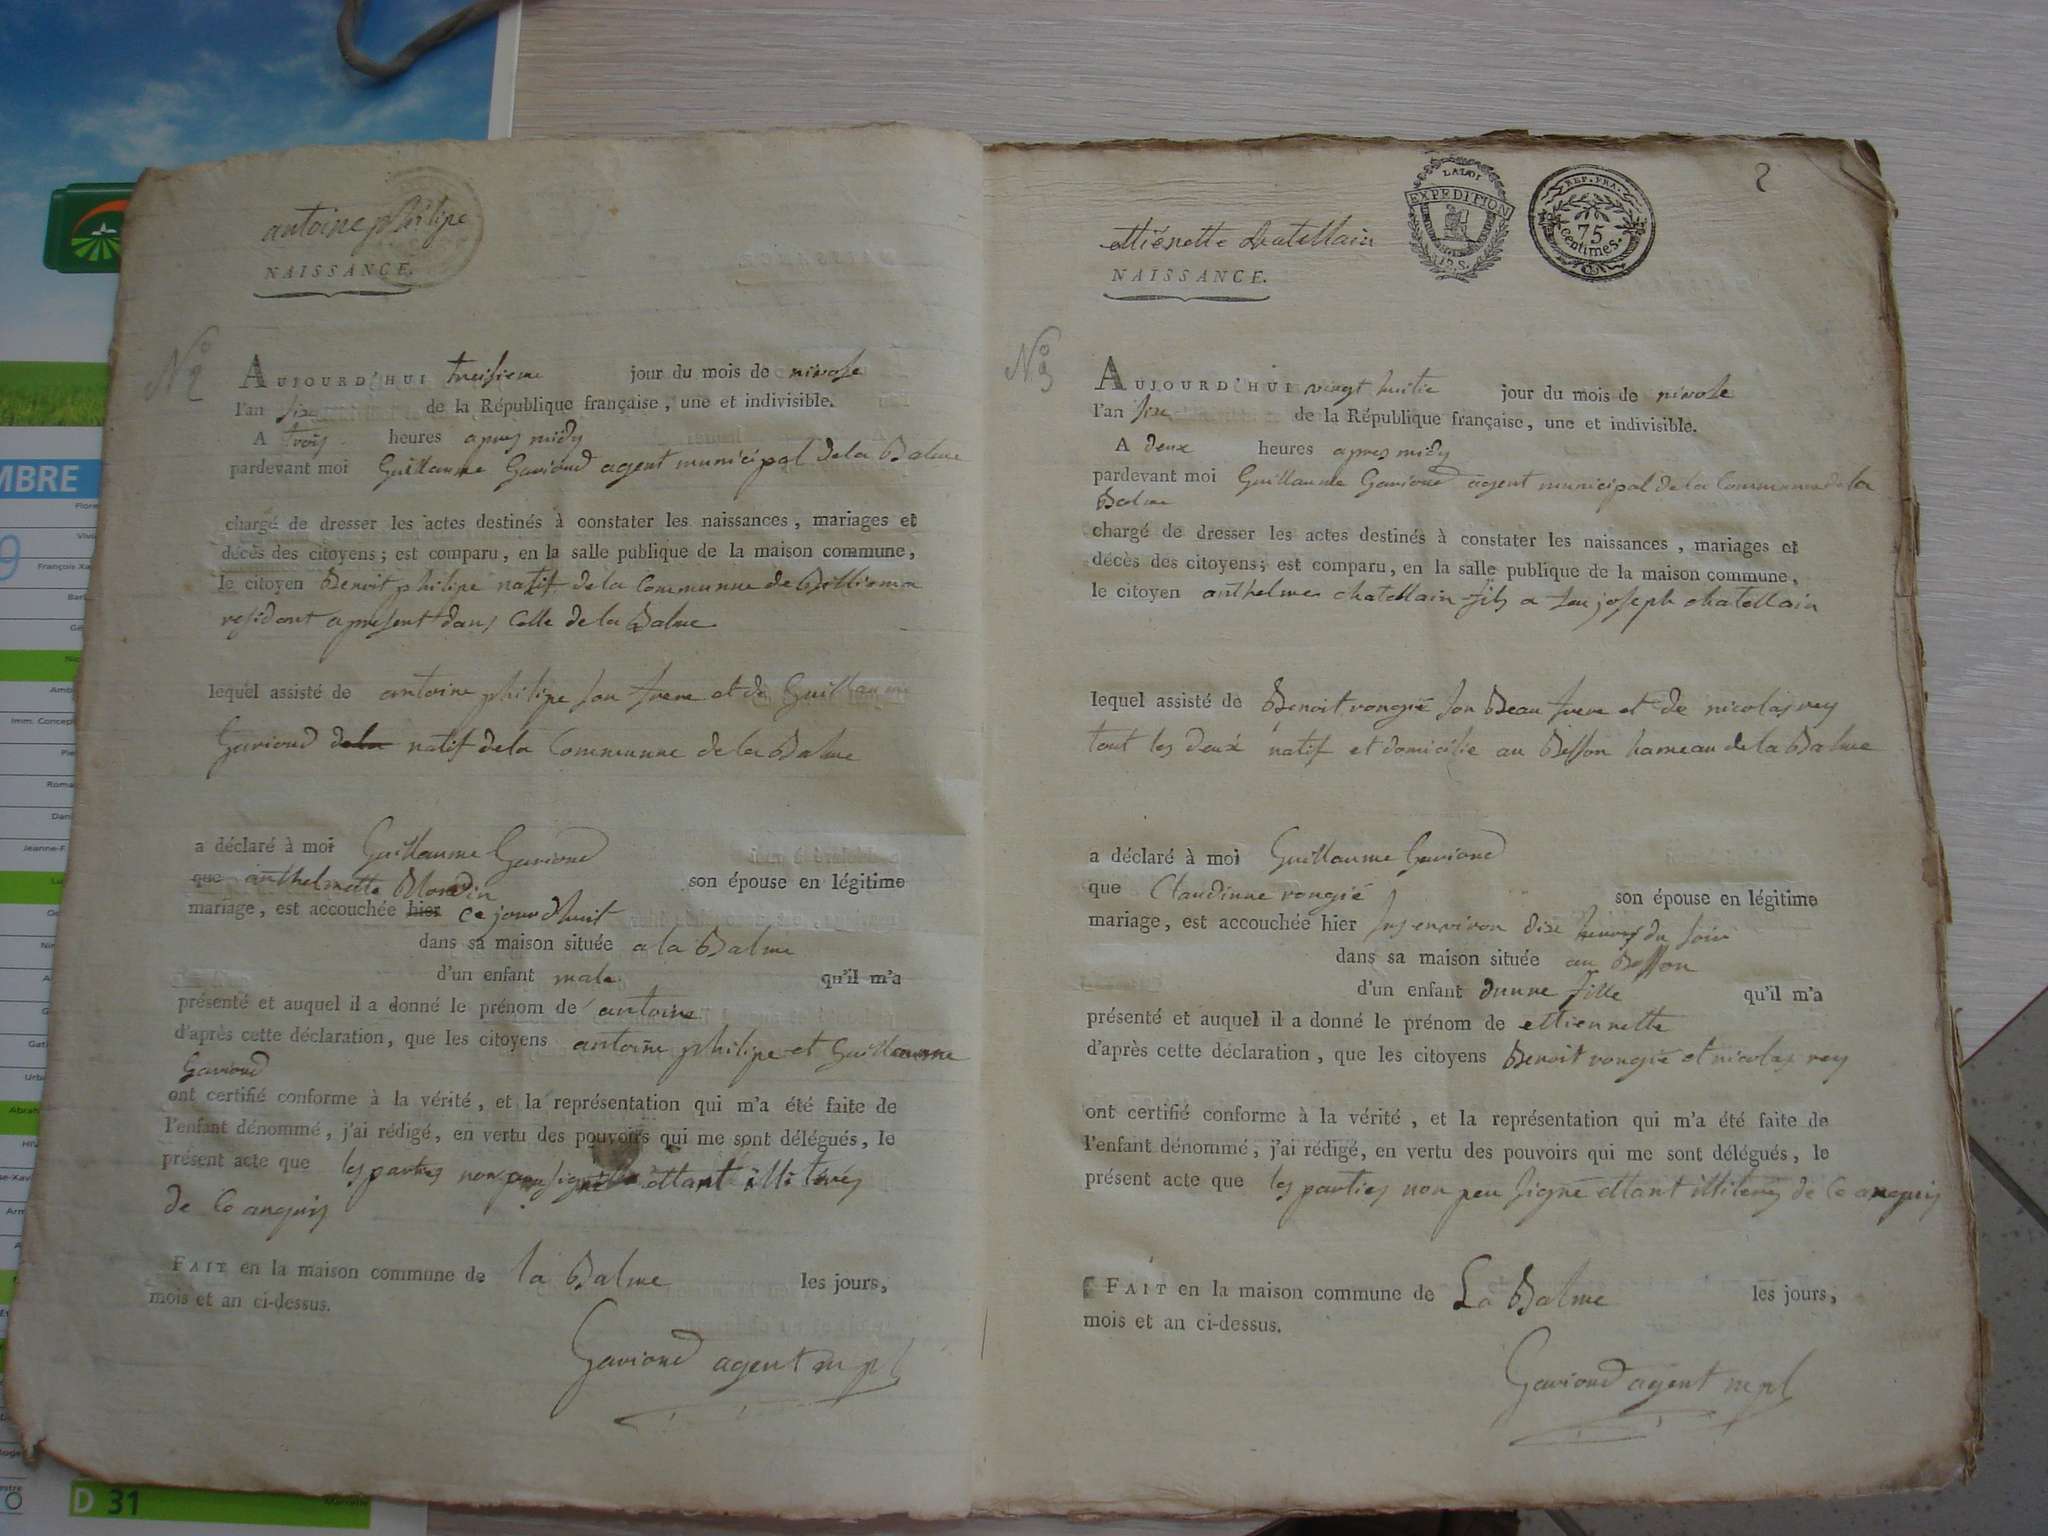 antoine philipe
NAISSANCE.
N° 2
AUJOURD'HUI treisieme jour du mois de nivose
l'an six de la République française, une et indivisible.
A trois heures apres midy
pardevant moi Guillaume Gavioud agent municipal de la Balme
chargé de dresser les actes destinés à constater les naissances, mariages et
décès des citoyens; est comparu, en la salle publique de la maison commune,
le citoyen Benoit philipe natif de la Communne de
residant apresent dans Celle de la Balme
lequel assisté de antoine philipe son frere et de Guillaume
Gavioud de la natif de la Communne de la Balme
a déclaré à moi Guillaume Gavioud
que anthelmette Blondin son épouse en légitime
mariage, est accouchée hier ce jourdhuit
dans sa maison située a la Balme
d'un enfant male qu'il m'a
présenté et auquel il a donné le prénom de antoine
d'après cette déclaration, que les citoyens antoine philipe et Guillaumme
Gavioud
ont certifié conforme à la vérité, et la représentation qui m'a été faite de
l'enfant dénommé, j'ai rédigé, en vertu des pouvoirs qui me sont délégués, le
présent acte que les parties non peu signe ettant illiterés
de Ce anquis
FAIT en la maison commune de la Balme les jours,
mois et an ci-dessus.
Gavioud agent mpl
2
LA LOI
EXPEDITION
REP. FRA.
75
centimes.
ettiénette chatellain
NAISSANCE.
N° 3
AUJOURD'HUI vingt huitie jour du mois de nivose
l'an six de la République française, une et indivisible.
A deux heures apres midy
pardevant moi Guillaume Gavioud agent municipal de la Commune de la
Balme
chargé de dresser les actes destinés à constater les naissances, mariages et
décès des citoyens; est comparu, en la salle publique de la maison commune,
le citoyen anthelme chatellain fils a feu joseph chatellain
lequel assisté de Benoit rongié son Beau frere et de nicolas rey
tout les deux natif et domicilie au Besson hameau de la Balme
a déclaré à moi Guillaume Gavioud
que Claudinne rongié son épouse en légitime
mariage, est accouchée hier sus environ dixe heures du soir
dans sa maison située au Besson
d'un enfant dunne fille qu'il m'a
présenté et auquel il a donné le prénom de ettiennette
d'après cette déclaration, que les citoyens Benoit rongié et nicolas rey
ont certifié conforme à la vérité, et la représentation qui m'a été faite de
l'enfant dénommé, j'ai rédigé, en vertu des pouvoirs qui me sont délégués, le
présent acte que les parties non peu signe ettant illiterés de Ce anquis
FAIT en la maison commune de La Balme les jours,
mois et an ci-dessus.
Gavioud agent mpl
MBRE
9
François Xa
Imm. Concep
Jeanne-F.
D 31